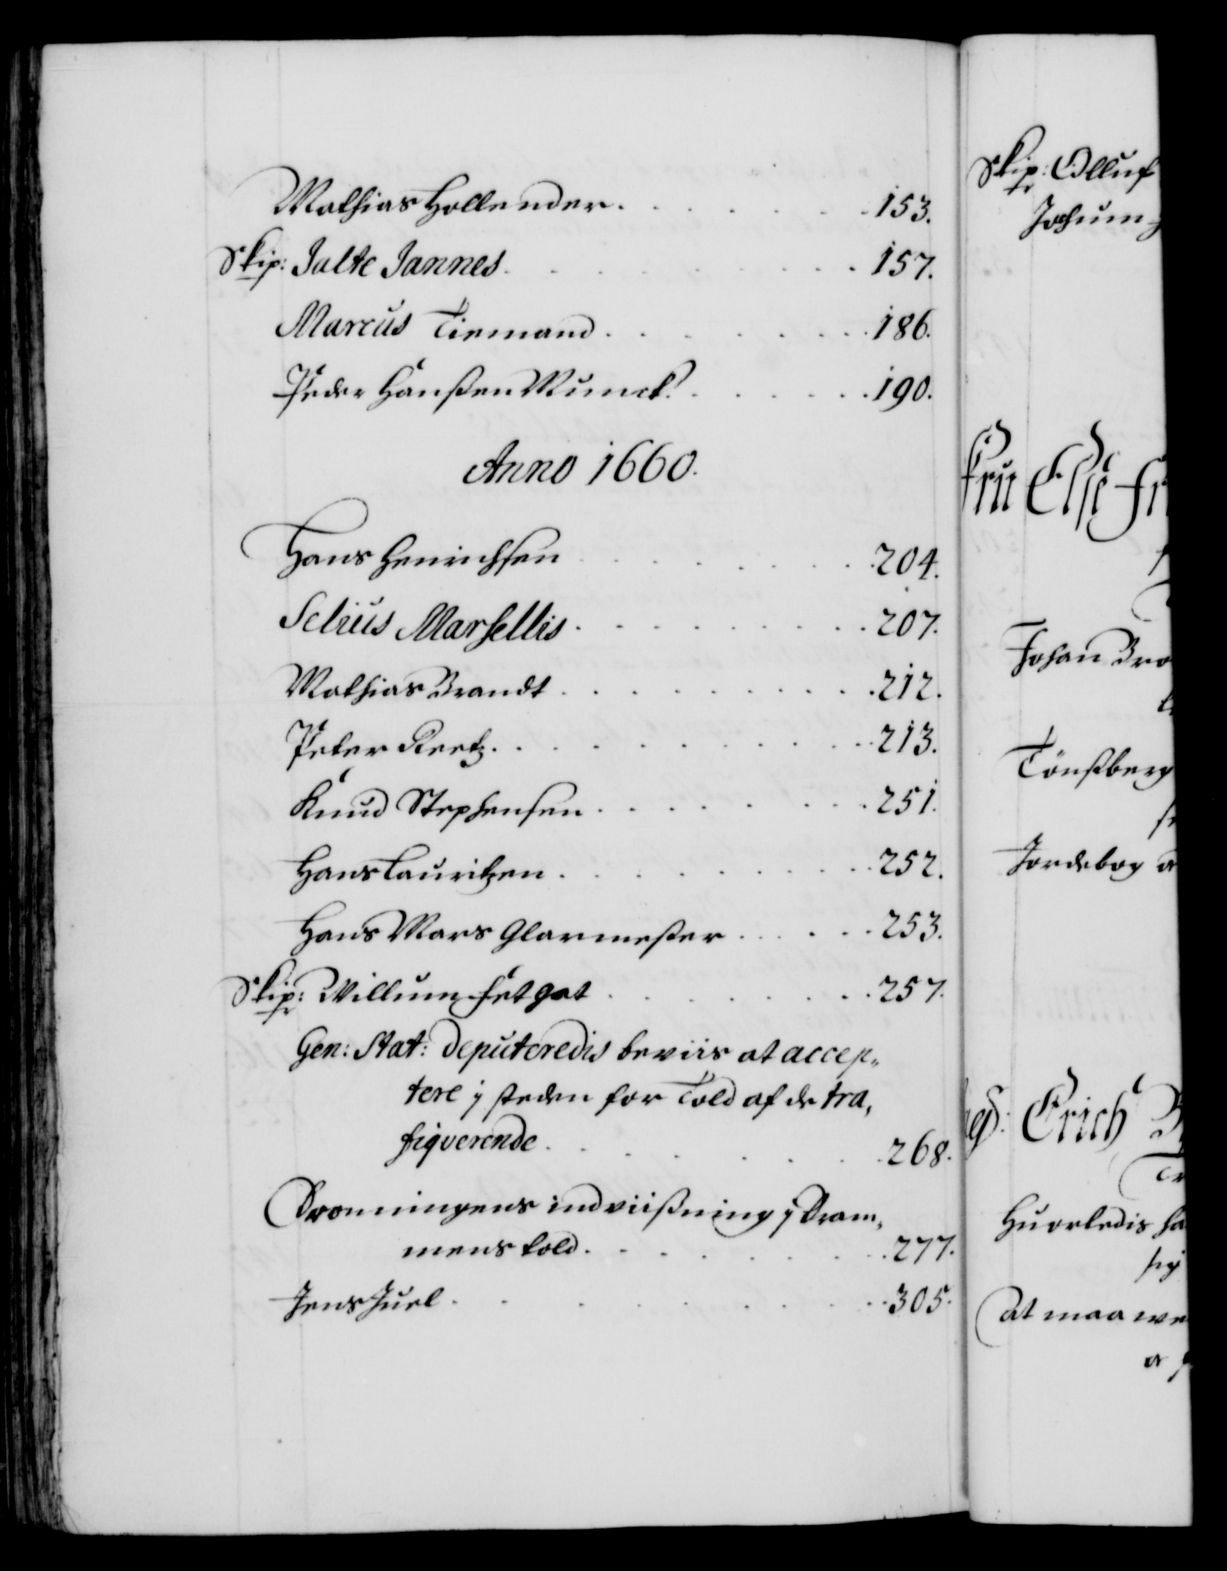 Mathias Hollender . . . . . . . 153.
Skip: Jalte Jannes . . . . . . . . 157.
Marcus Tiemand . . . . . . . . 186.
Peder Hanßen Munck . . . . . . 190.
Anno 1660.
Hans Henrichsen . . . . . . . . 204.
Selius Marsellis . . . . . . . . . 207.
Mathias Brandt . . . . . . . . . 212.
Peter . . . . . . . . . . 213.
Knud Stephensen . . . . . . . . 251.
Hans Lauritzen . . . . . . . . . 252.
Hans Mars Glarmester . . . . . 253.
Skip: Willum . . . . . . . . 257.
Gen: Stat: deputeredis beviis at accep„
tere j steden for Told af de tra,
fiqverende . . . . . . . . 268.
Dronningens indviißning j Dram,
mens told . . . . . . . . . 277.
Jens Juel . . . . . . . . . . . 305.
Skip: Olluf
Jochum
Fru Else Fr
Johan Bro
Tönßberg
Jordebog a
Erich
Huorledis ha
sig
At maa we